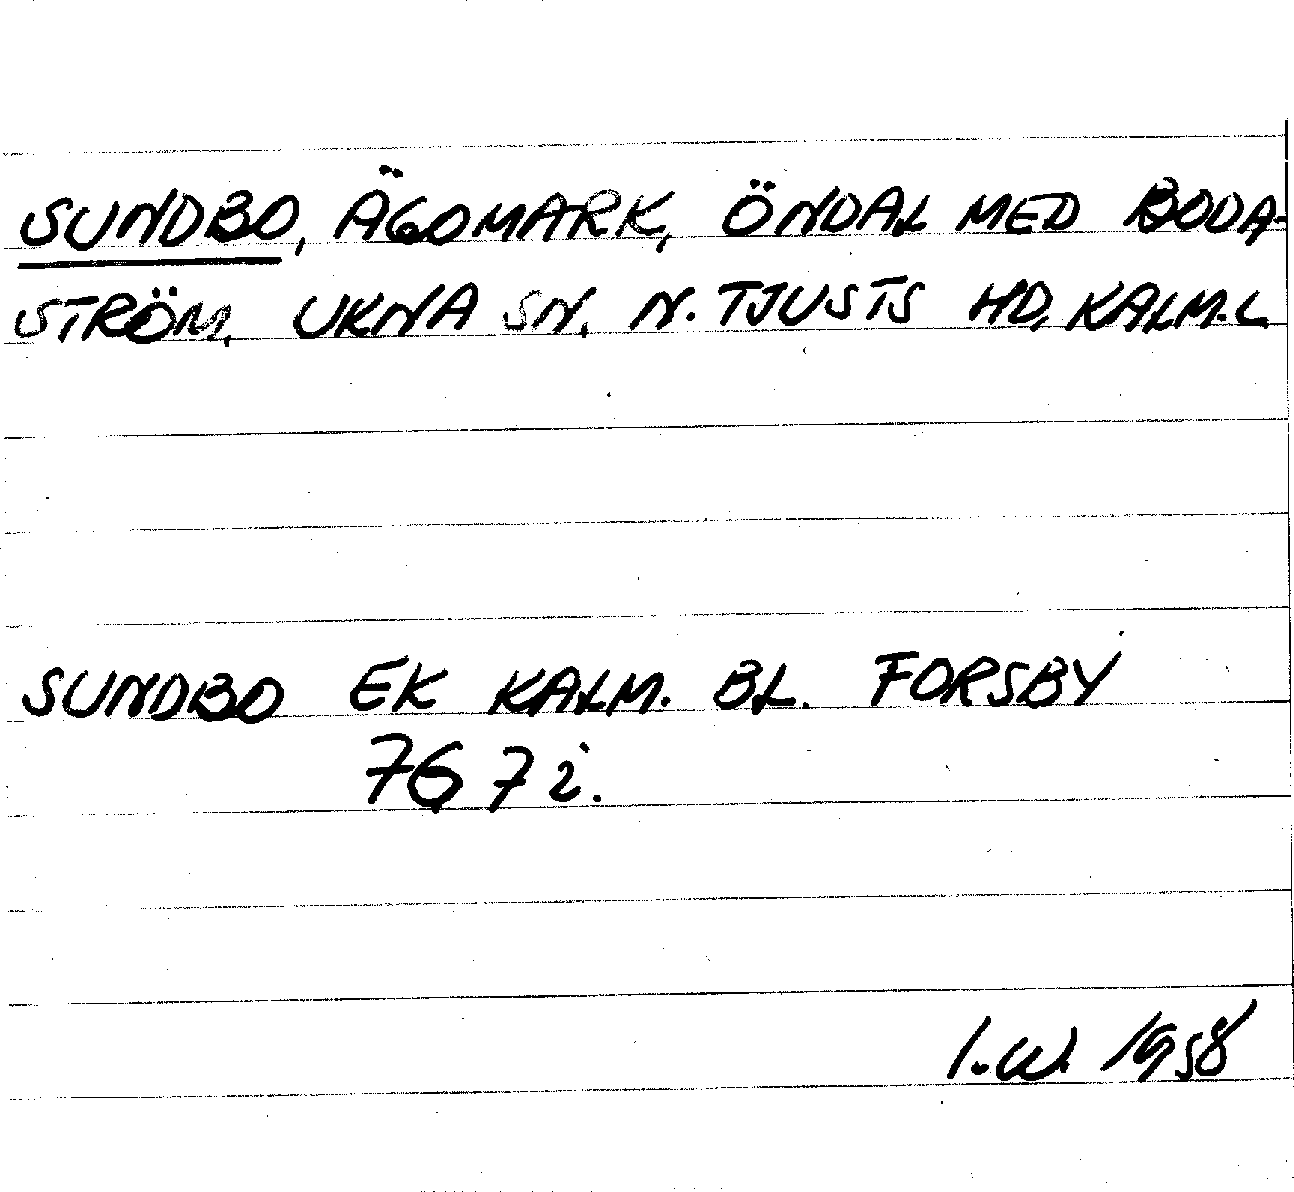 SUNDBO, ÄGOMARK, ÖNDAL MED BODA-
STRÖM, UKNA SN, N. TJUSTS HD, KALM. L
SUNDBO EK KALM. BL. FORSBY
767i.
I.W. 1958